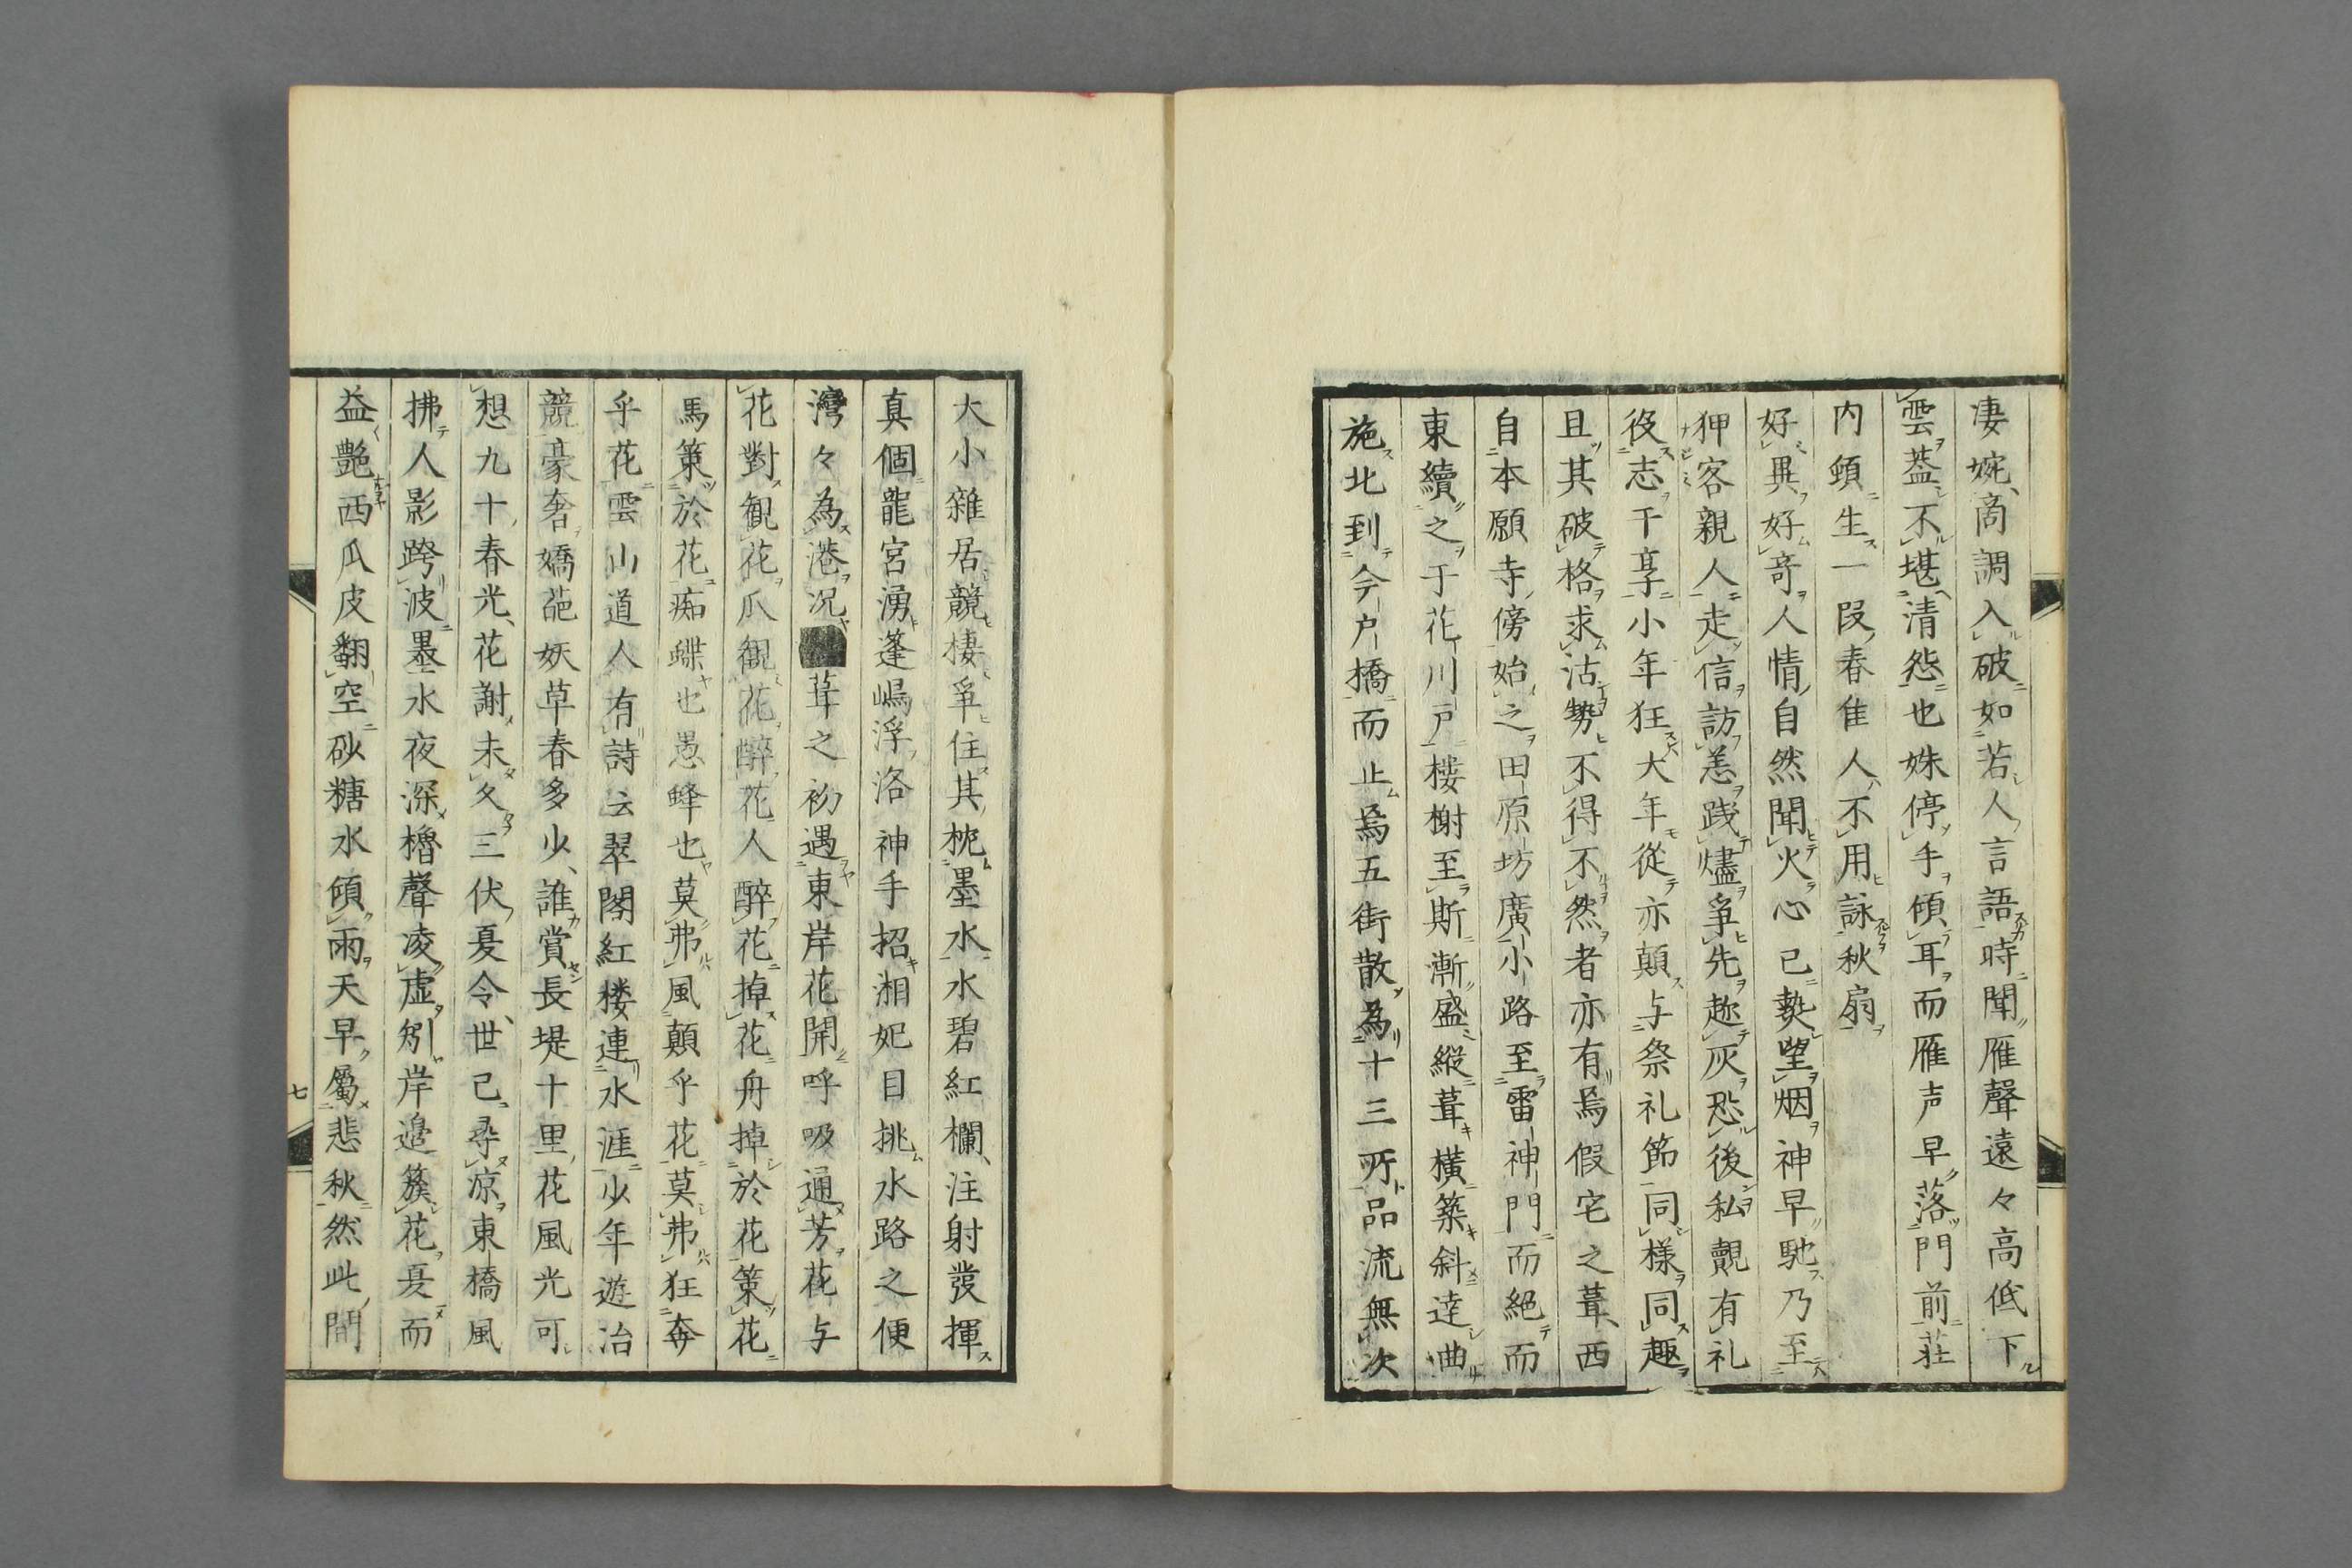 凄婉、商調入破如若人言語時聞雁聲遠々高低下
雲葢不堪清怨也姝停手傾耳而雁声早落門前荘
内頓生一段春隹人不用詠秋扇
好異好竒人情自然聞火心已熱望烟神早馳乃至
狎客親人走信訪恙踐燼爭先趂灰恐後私覿有礼
役志于享小年狂大年從亦顛与祭礼節同様同趣
且其破格求沽勢不得不然者亦有焉假宅之葺、西
自本願寺傍始之田原坊廣小路至雷神門而絕而
東續之于花川戸樓榭至斯漸盛縱葺横築斜達曲
施北到今户橋而止焉五街散為十三所品流無次
大小雜居競棲爭住其枕墨水水碧紅欄、注射發揮
真個龍宮湧蓬嶋浮洛神手招湘妃目挑水路之便
灣々為港况葺之初遇東岸花開呼吸通芳花与
花對觀花爪観花醉花人醉花掉花舟掉於花策花
馬策於花痴蝶也愚蜂也莫弗風顛乎花莫弗狂奔
乎花雲山道人有詩云翠閣紅楼連水涯少年遊冶
競豪奢嬌葩妖草春多少、誰賞長堤十里花風光可
想九十春光、花謝未久三伏夏令、世已尋凉東橋風
拂人影跨波墨水夜深櫓聲凌虛矧岸邉簇花夏而
益艶西瓜皮翻空砂糖水傾雨天早屬悲秋然此間
七